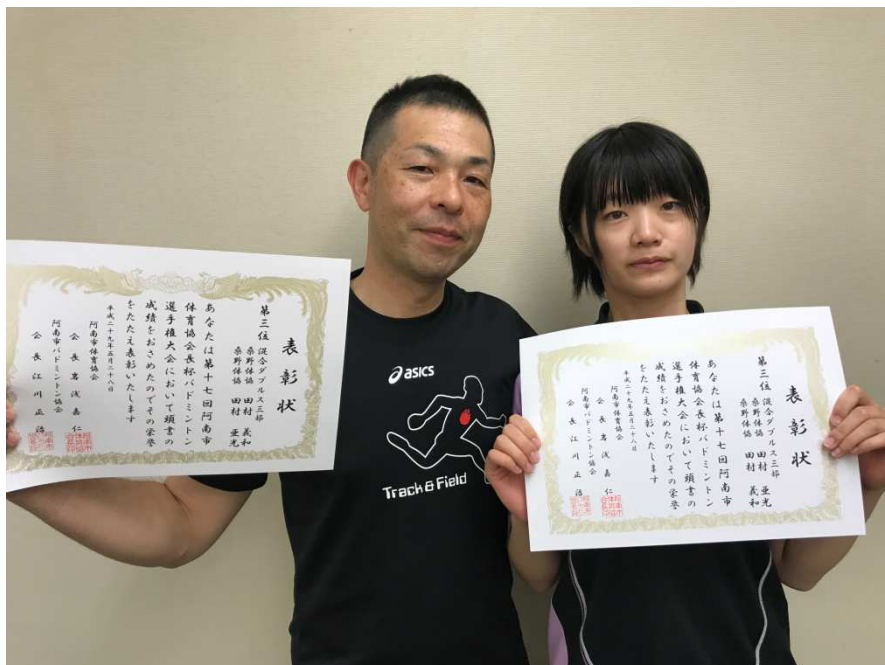 表彰状
第三位 混合ダブルス三部
桑野体協 田村 義和
桑野体協 田村 亜光
あなたは第十七回阿南市
体育協会長杯バドミントン
選手権大会において頭書の
成績をおさめたのでその栄誉
をたたえ表彰いたします
平成二十九年五月二十八日
阿南市体育協会
会長 岩浅 嘉仁
阿南市バドミントン協会
会長 江川 正治
asics
Track & Field
表彰状
第三位 混合ダブルス三部
桑野体協 田村 亜光
桑野体協 田村 義和
あなたは第十七回阿南市
体育協会長杯バドミントン
選手権大会において頭書の
成績をおさめたのでその栄誉
をたたえ表彰いたします
平成二十九年五月二十八日
阿南市体育協会
会長 岩浅 嘉仁
阿南市バドミントン協会
会長 江川 正治